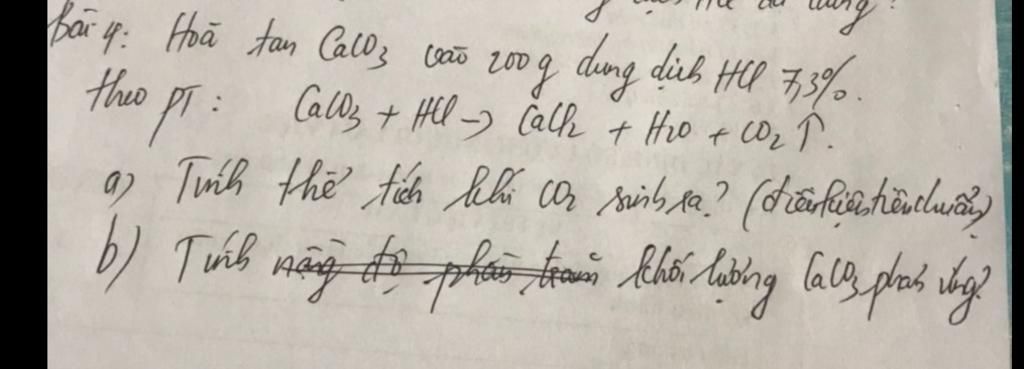 Bài 4: Hoà tan CaCO3 vào 200g dung dịch HCl 7,3%.
theo PT: CaCO3 + HCl → CaCl2 + H2O + CO2 ↑.
a) Tính thể tích khí CO2 sinh ra? (điều kiện tiêu chuẩn)
b) Tính nồng độ phần trăm khối lượng CaCO3 phản ứng?